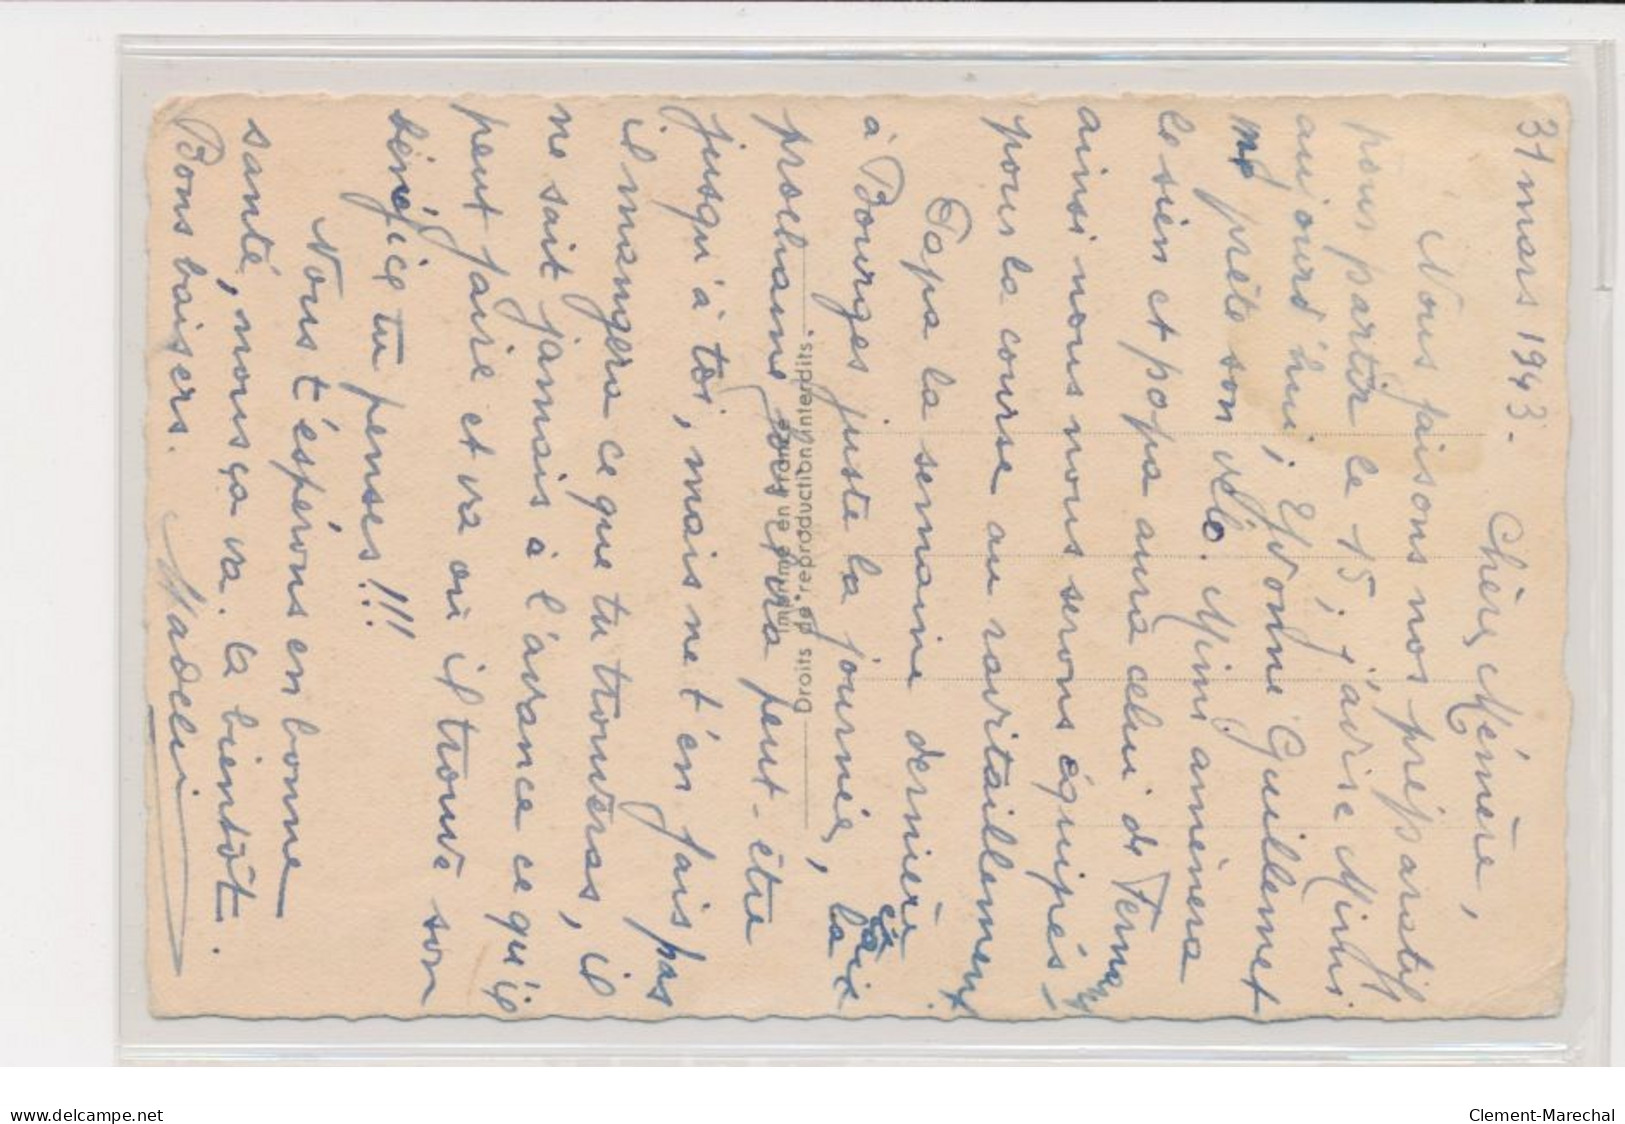 31 mars 1943.
Chère Mémère,
Nous faisons nos préparatifs
pour partir le 15, j'avise Mimi
aujourd'hui; Yvonne Guillemet
me prête son vélo. Mimi amènera
le sien et papa aura celui de Fernand
ainsi nous nous serons équipés,
pour la course au ravitaillement.
Papa la semaine dernière
à Bourges juste la journée, la
prochaine fois et ira peut-être
jusqu'à toi, mais ne t'en fais pas
il mangera ce que tu trouveras, il
ne sait jamais à l'avance ce qu'il
peut faire et va où il trouve son
bénéfice tu penses!!!
Nous t'espérons en bonne
santé, nous ça va. à bientôt.
Bons baisers. Madelin
Imprimé en France
Droits de reproduction interdits.
www.delcampe.net
Clement-Marechal